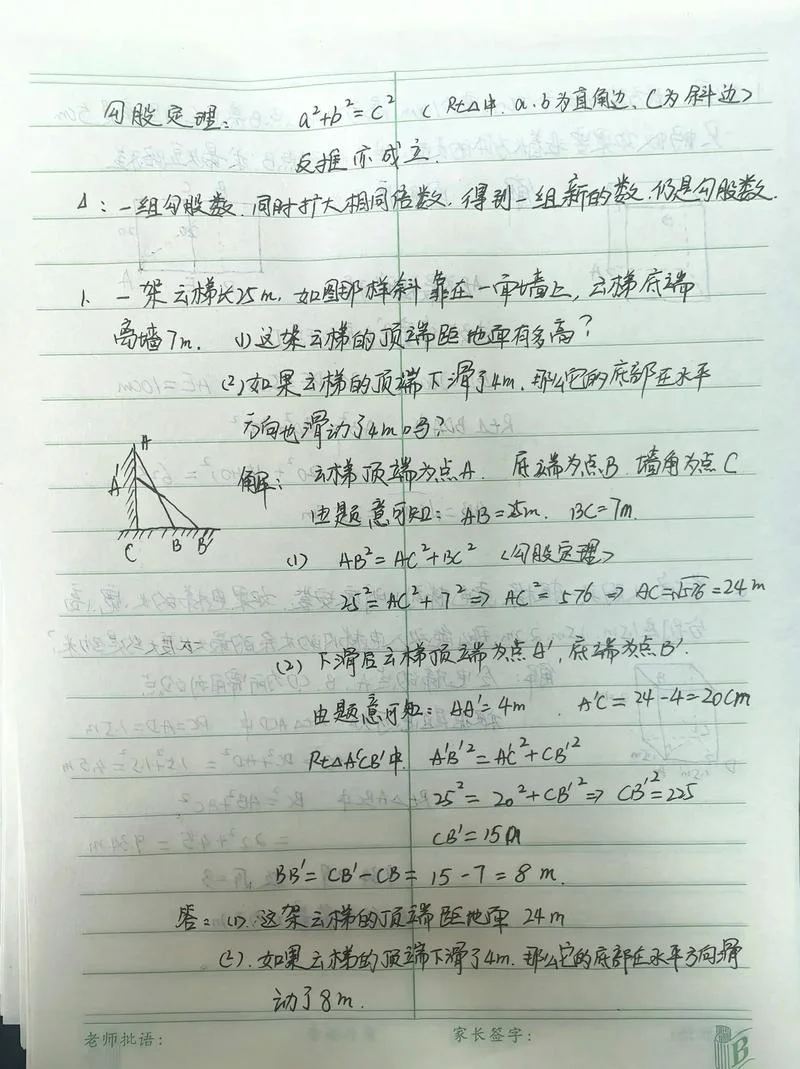 勾股定理: a²+b²=c² (Rt△中, a.b为直角边, C为斜边)
反推亦成立.
△: 一组勾股数, 同时扩大相同倍数, 得到一组新的数, 仍是勾股数.
1. 一架云梯长25m, 如图那样斜靠在一面墙上, 云梯底端
离墙7m. (1)这架云梯的顶端距地面有多高?
(2)如果云梯的顶端下滑了4m, 那么它的底部在水平
方向也滑动了4m吗?
A
A'
C B B'
解: 云梯顶端为点A. 底端为点B 墙角为点C
由题意可知: AB=25m. BC=7m.
(1) AB²=AC²+BC² <勾股定理>
25²=AC²+7² ⇒ AC²=576 ⇒ AC=√576=24m
(2) 下滑后云梯顶端为点A', 底端为点B'.
由题意可知: AA'=4m. A'C=24-4=20cm
Rt△A'CB'中, A'B'²=A'C²+CB'²
25²=20²+CB'² ⇒ CB'²=225
CB'=15m
BB'=CB'-CB=15-7=8m.
答: (1). 这架云梯的顶端距地面 24m
(2). 如果云梯的顶端下滑了4m. 那么它的底部在水平方向滑
动了8m.
老师批语: 家长签字:
B